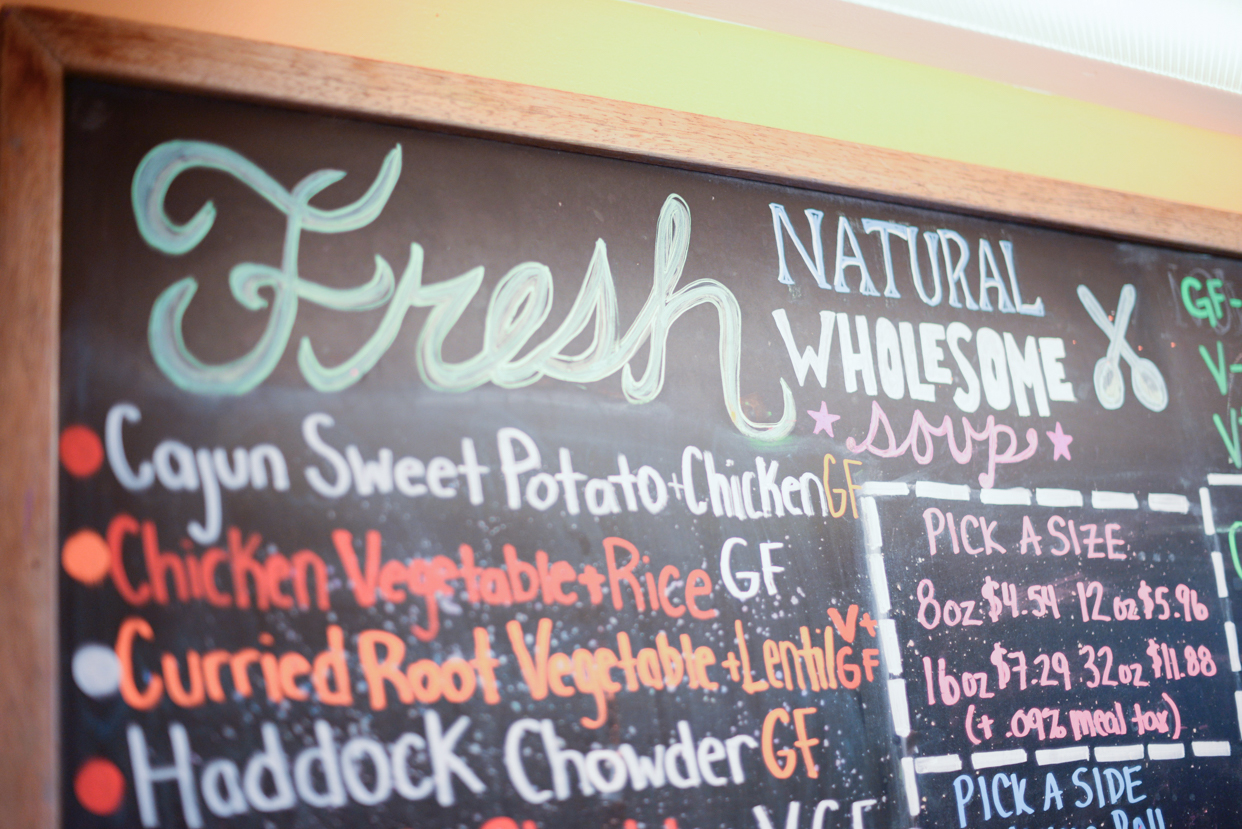 Fresh
NATURAL
WHOLESOME
soup
GF-
V-
Cajun Sweet Potato + Chicken GF
Chicken Vegetable + Rice GF
Curried Root Vegetable + Lentil V+ GF
Haddock Chowder GF
PICK A SIZE
8oz $4.54 12oz $5.96
16oz $7.29 32oz $11.88
(+ .09% meal tax)
PICK A SIDE